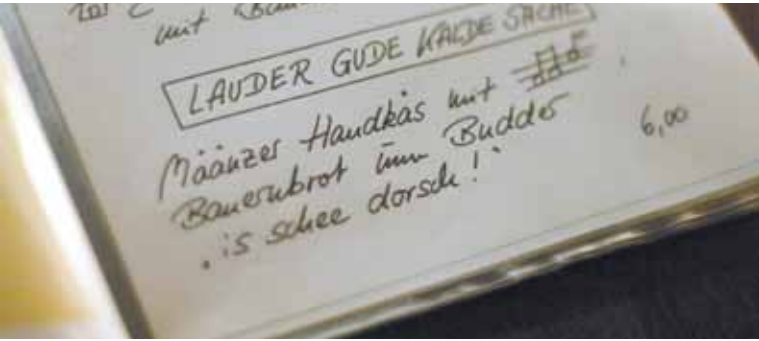 mit
LAUDER GUDE KALDE SACHE
Määnzer Handkäs mit
Bauernbrot unn Budder 6,00
"is schee dorsch!"